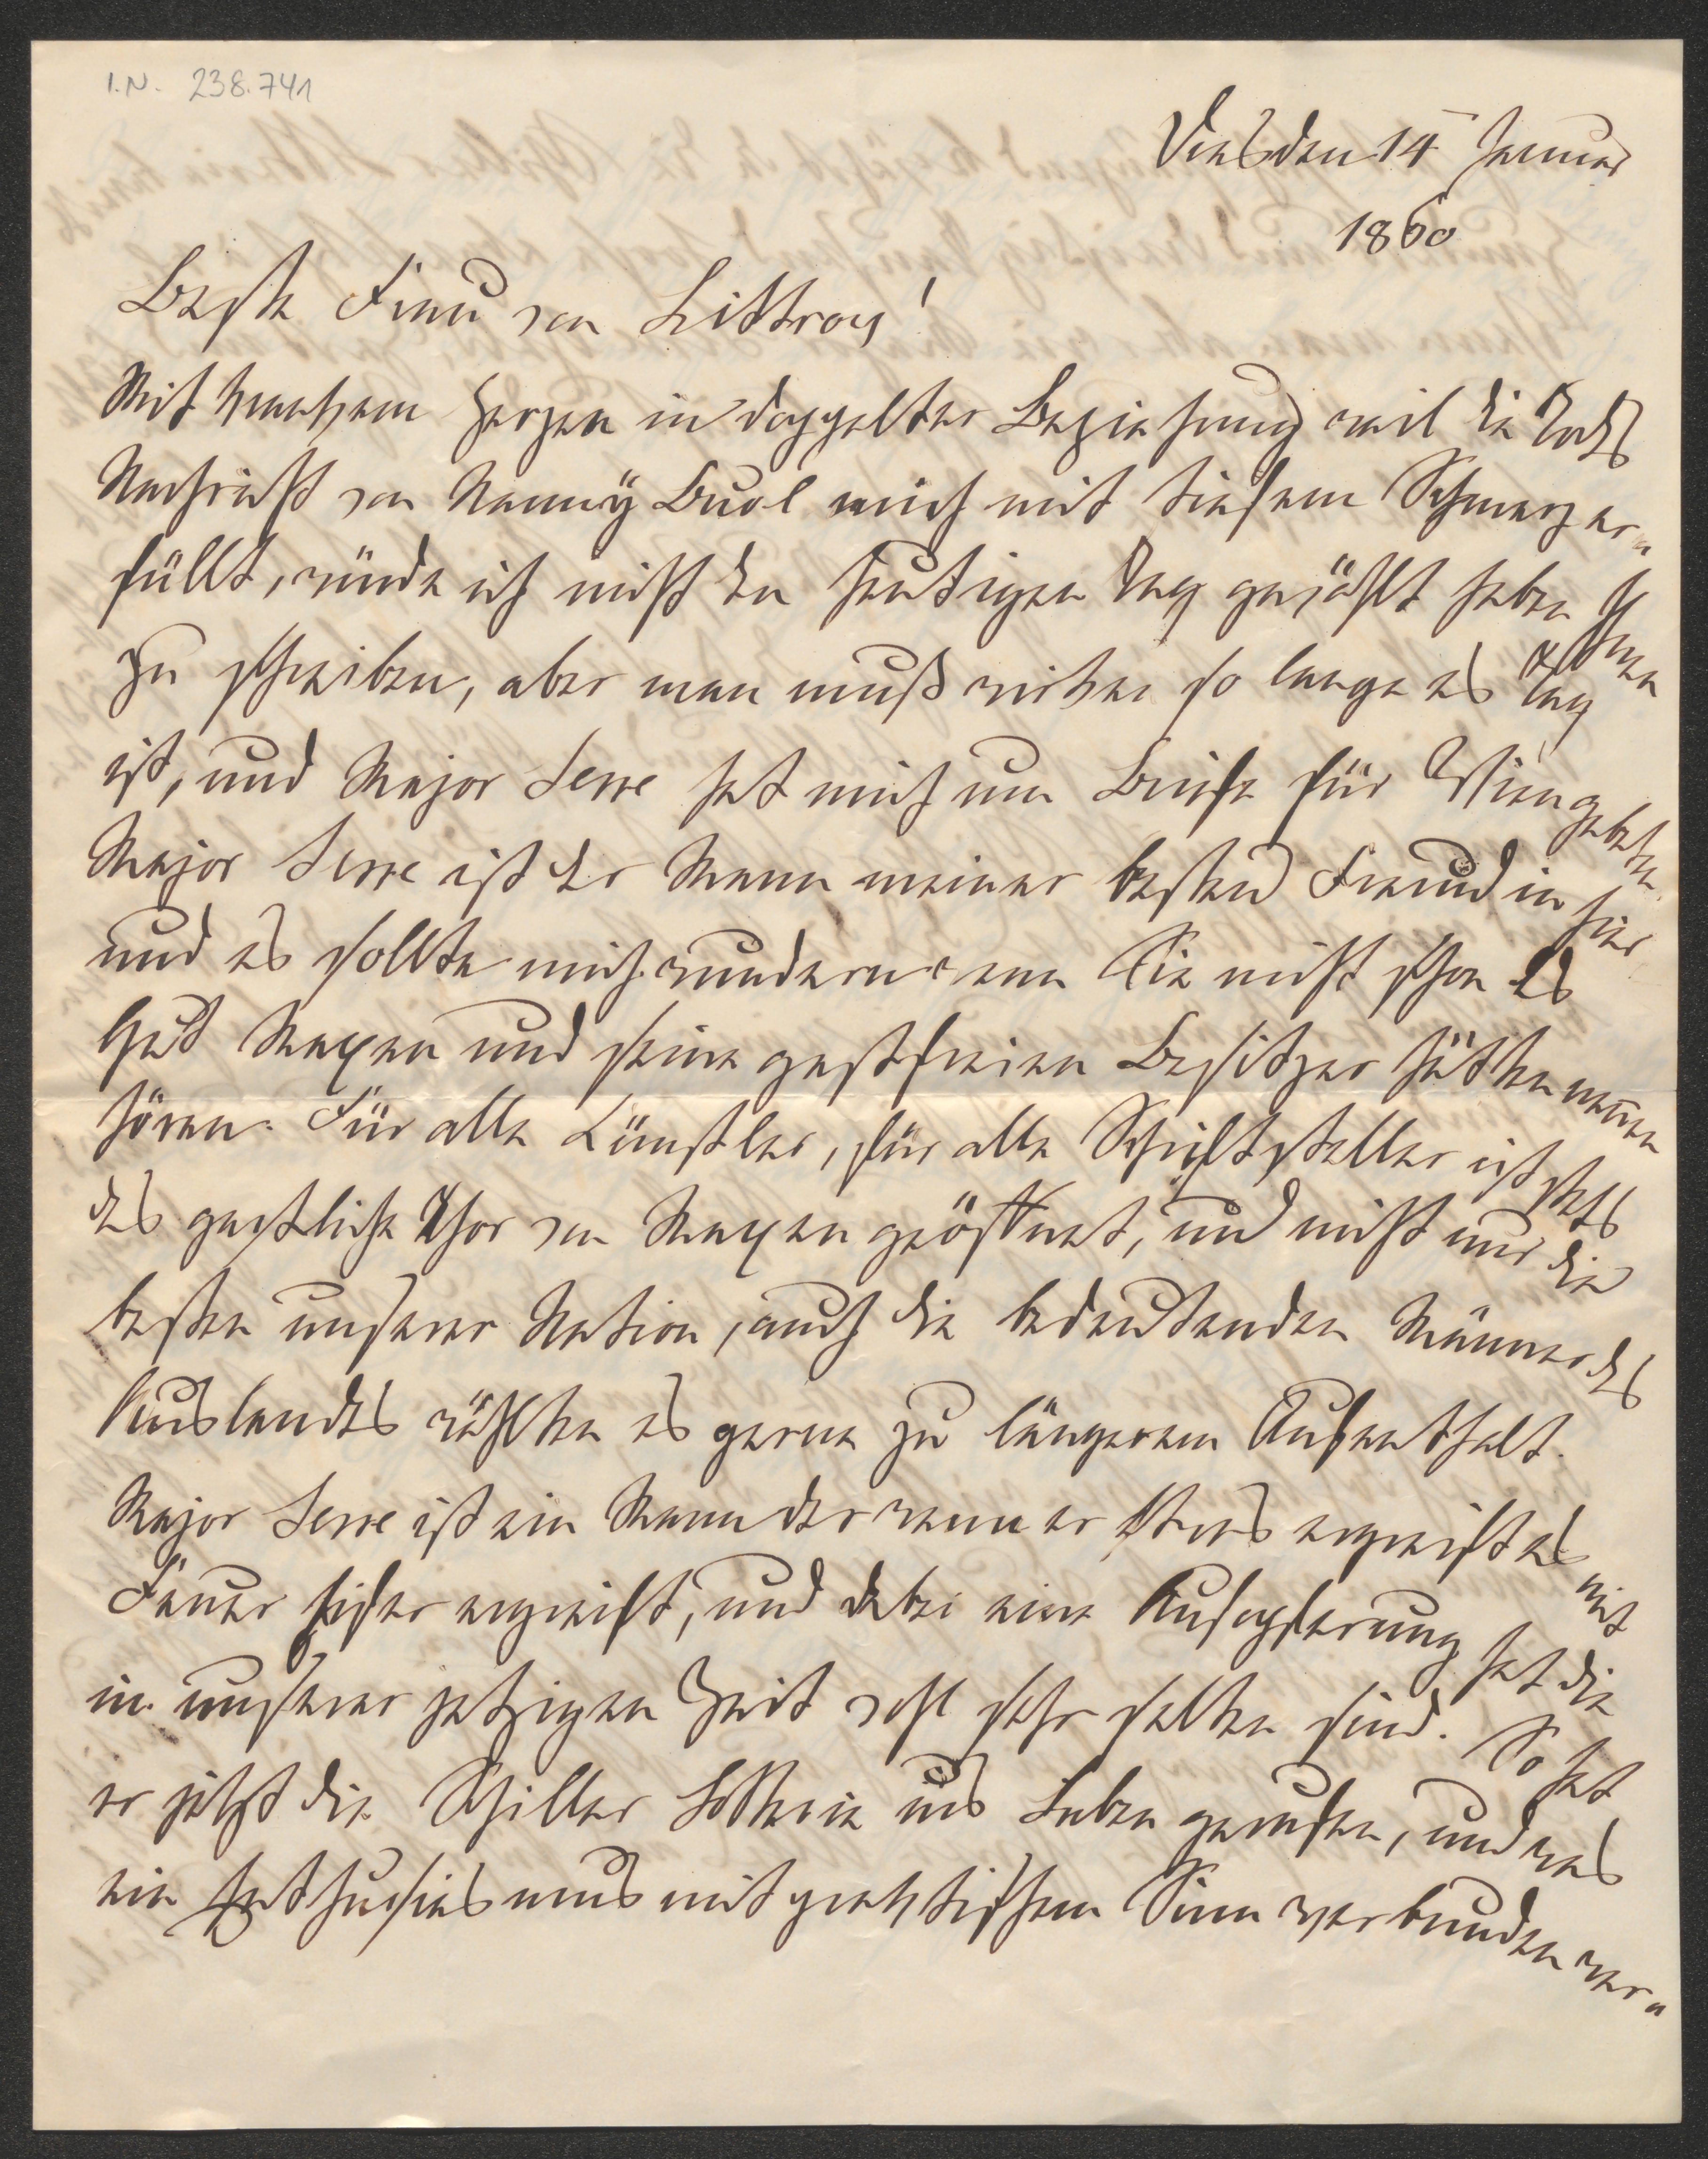 I.N. 238.741
Dresden 14 Januar
1860
Beste Frau von Littrow!
Mit krankem Herzen in doppelter Beziehung weil die Todes
Nachricht von Nanny Buol mich mit tiefem Schmerz er-
füllt, würde ich nicht den heutigen Tag gewählt haben Ihnen
zu schreiben, aber man muß wirken so lange es Tag
ist, und Major Serre hat mich um Briefe für Wien gebethen.
Major Serre ist der Mann meiner besten Freundin hier
und es sollte mich wundern wenn Sie nicht schon das
Gut Maxen und seine gastfreien Besitzer hätten nennen
hören. Für alle Künstler, für alle Schriftsteller ist stets
das gastliche Thor von Maxen geöffnet, und nicht nur die
besten unserer Nation, auch die bedeutenden Männer des
Auslandes wählten es gerne zu längerem Aufenthalt.
Major Serre ist ein Mann der wenn er etwas ergreift es mit
Feuer Eifer ergreift, und dabei eine Aufopferung hat die
in unserer jetzigen Zeit wohl sehr selten sind. So hat
er jetzt die Schiller Lotterie ins Leben gerufen, und was
ein Enthusiasmus mit praktischem Sinn verbunden ver-